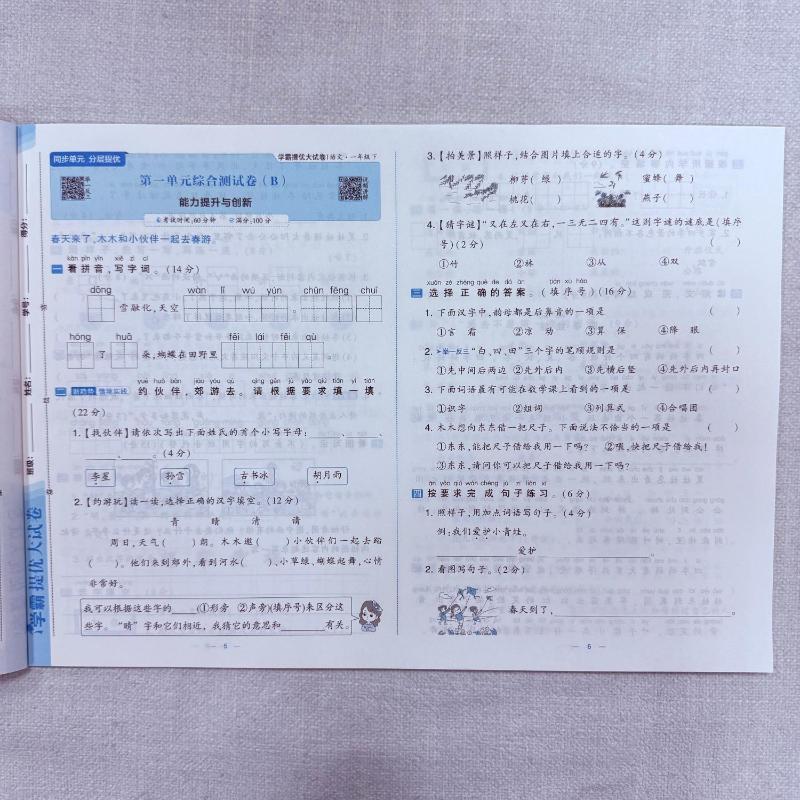 同步单元 分层提优
学霸提优大试卷 语文·一年级下
第一单元综合测试卷(B)
能力提升与创新
考试时间:60分钟 满分:100分
春天来了,木木和小伙伴一起去春游。
kàn pīn yīn xiě zì cí
一 看拼音,写字词。(14分)
dōng wàn lǐ wú yún chūn fēng chuī
雪融化,天空
hóng huā fēi lái fēi qù
了 朵,蝴蝶在田野里
yuē huǒ bàn jiāo yóu qù qǐng gēn jù yāo qiú tián yì tián
二 新趋势 情境实践 约伙伴,郊游去。请根据要求填一填。
(22分)
1.【找伙伴】请依次写出下面姓氏的首个小写字母:____、____、
____、____。(4分)
李星 孙雪 古书冰 胡月雨
2.【约游玩】读一读,选择正确的汉字填空。(12分)
青 晴 清 请
周日,天气( )朗。木木邀( )小伙伴们一起去踏
( )。他们来到郊外,看到河水( ),小草绿,蝴蝶起舞,心情
非常好。
我可以根据这些字的____(①形旁 ②声旁)(填序号)来区分这
些字。“睛”字和它们相近,我猜它的意思和________有关。
— 5 —
学霸提优大试卷
班级:
姓名:
学号:
得分:
3.【拍美景】照样子,结合图片填上合适的字。(4分)
柳芽( 绿 ) 蜜蜂( 舞 )
桃花( ) 燕子( )
4.【猜字谜】“又在左又在右,一三无二四有。”这则字谜的谜底是(填序
号)(2分) ( )
①竹 ②林 ③从 ④双
xuǎn zé zhèng què de dá àn tián xù hào
三 选择正确的答案。(填序号)(16分)
1. 下面汉字中,韵母都是后鼻音的一项是 ( )
①言 霜 ②凉 动 ③算 保 ④降 眼
2. 举一反三 “白、四、田”三个字的笔顺规则是 ( )
①先中间后两边 ②先外后内 ③先横后竖 ④先外后内再封口
3. 下面词语最有可能在数学课上看到的一项是 ( )
①识字 ②组词 ③列算式 ④合唱团
4. 木木想向东东借一把尺子。下面说法不恰当的一项是 ( )
①东东,能把尺子借给我用一下吗? ②喂,快把尺子借给我!
③东东,请问你可以把尺子借给我用一下吗?
àn yāo qiú wán chéng jù zi liàn xí
四 按要求完成句子练习。(6分)
1. 照样子,用加点词语写句子。(4分)
例:我们爱护小青蛙。
____________爱护____________。
2. 看图写句子。(2分)
春天到了,____________。
— 6 —